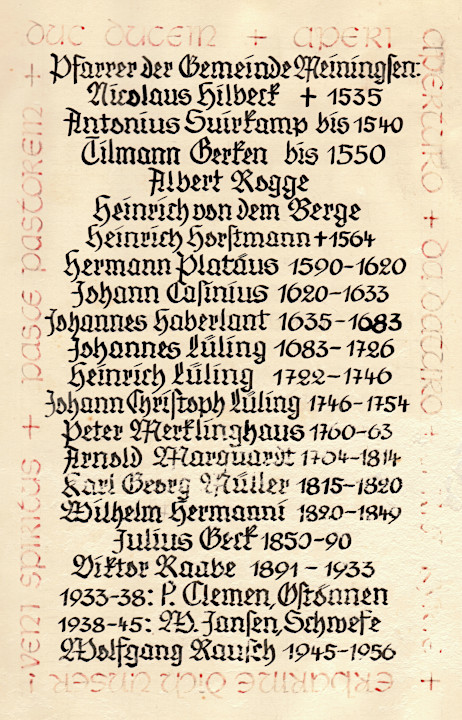 duc ducem + aperi
Pfarrer der Gemeinde Meiningsen:
Nicolaus Hilbeck + 1535
Antonius Suirkamp bis 1540
Tilmann Gerken bis 1550
Albert Rogge
Heinrich von dem Berge
Heinrich Horstmann + 1564
Hermann Platäus 1590-1620
Johann Casinius 1620-1633
Johannes Haberlant 1635-1683
Johannes Lüling 1683-1726
Heinrich Lüling 1722-1746
Johann Christoph Lüling 1746-1754
Peter Merklinghaus 1760-63
Arnold Marquardt 1764-1814
Karl Georg Müller 1815-1820
Wilhelm Hermanni 1820-1849
Julius Geck 1850-90
Viktor Raabe 1891-1933
1933-38: P. Clemen, Ostönnen
1938-45: W. Jansen, Schwefe
Wolfgang Rausch 1945-1956
aperturo + da daturo +
erbarme dich unser!
veni spiritus + pasce pastorem +